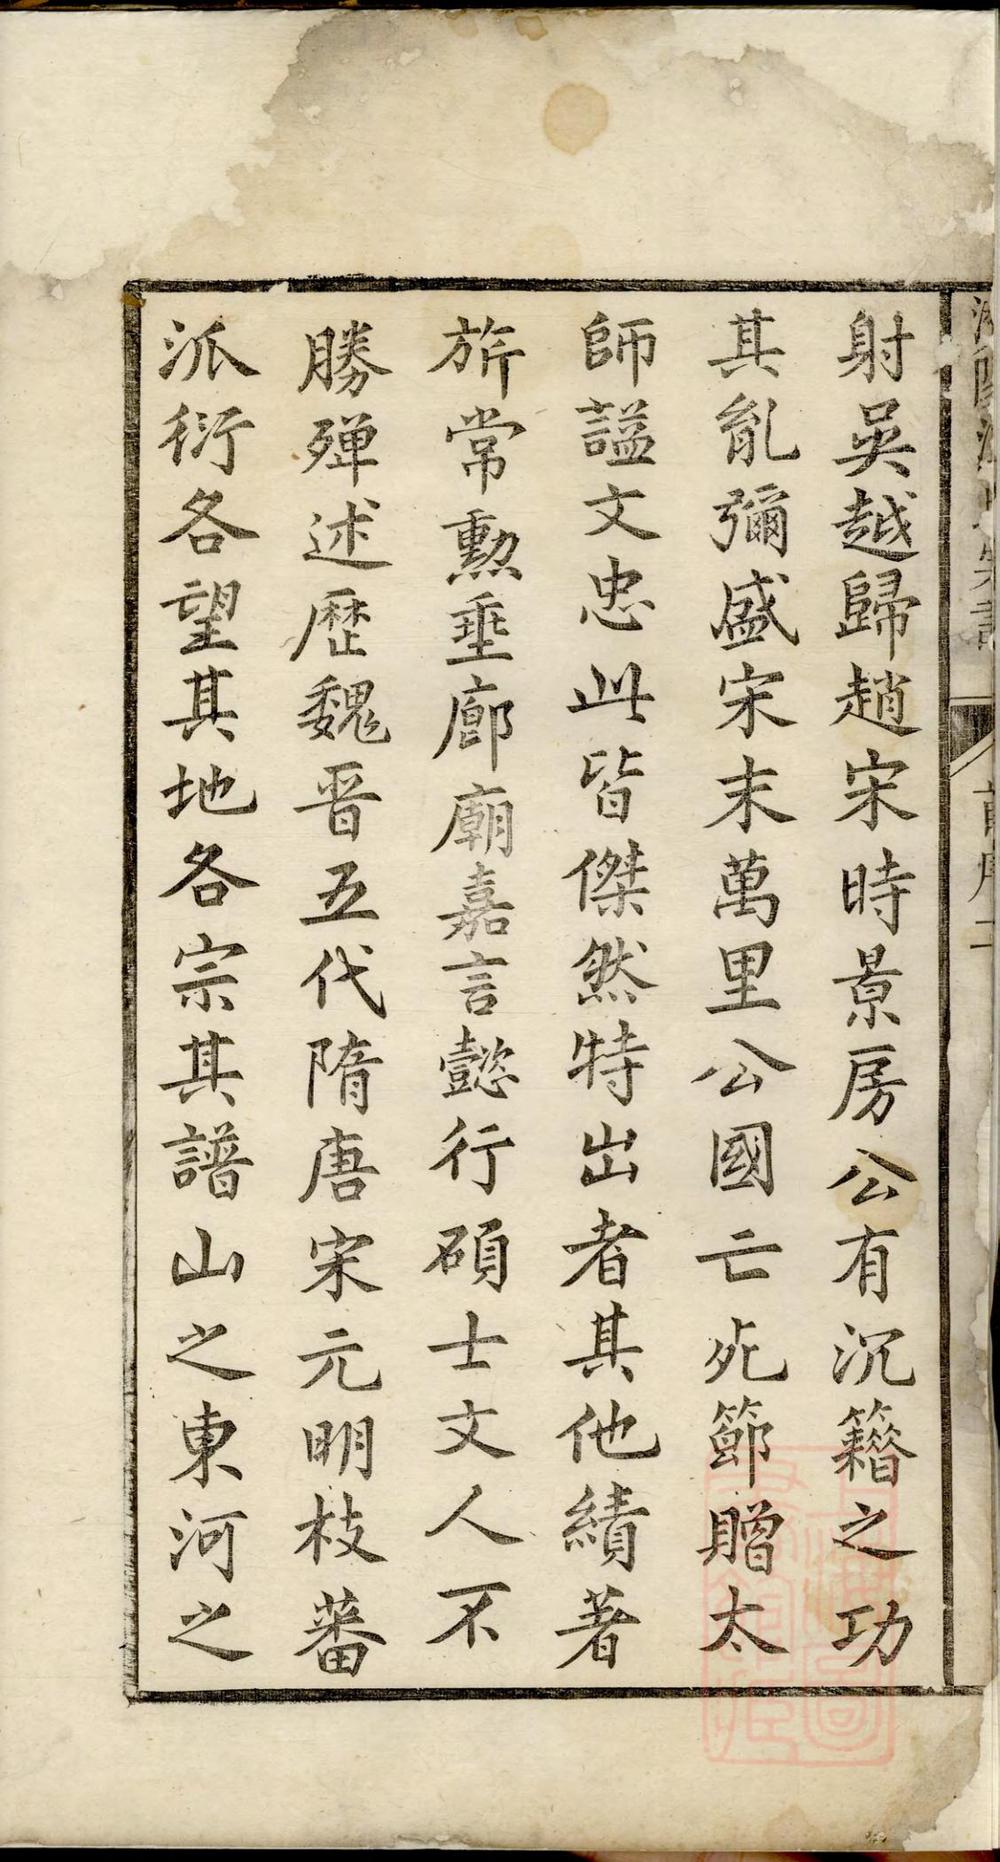 射吳越歸趙宋時景房公有沉籍之功
其胤彌盛宋末萬里公國亡死節贈太
師謚文忠此皆傑然特出者其他績著
旂常勲垂廊廟嘉言懿行碩士文人不
勝殫述歷魏晋五代隋唐宋元明枝蕃
派衍各望其地各宗其譜山之東河之